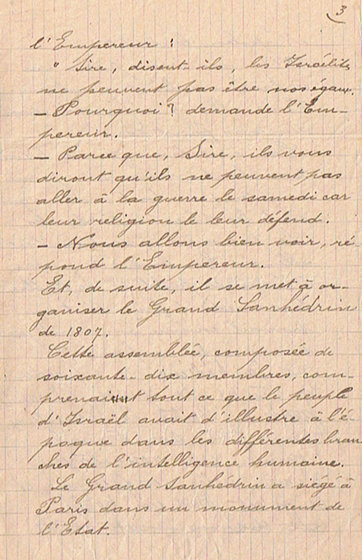 3
l'Empereur :
" Sire, disent-ils, les Israélites
ne peuvent pas être nos égaux.
– Pourquoi ? demande l'Em-
pereur.
– Parce que, Sire, ils vous
diront qu'ils ne peuvent pas
aller à la guerre le samedi car
leur religion le leur défend.
– Nous allons bien voir, ré
pond l'Empereur.
Et, de suite, il se met à or-
ganiser le Grand Sanhédrin
de 1807.
Cette assemblée, composée de
soixante-dix membres, com-
prenait tout ce que le peuple
d'Israël avait d'illustre à l'é-
poque dans les différentes bran
ches de l'intelligence humaine.
Le Grand Sanhédrin a siégé à
Paris dans un monument de
l'Etat.